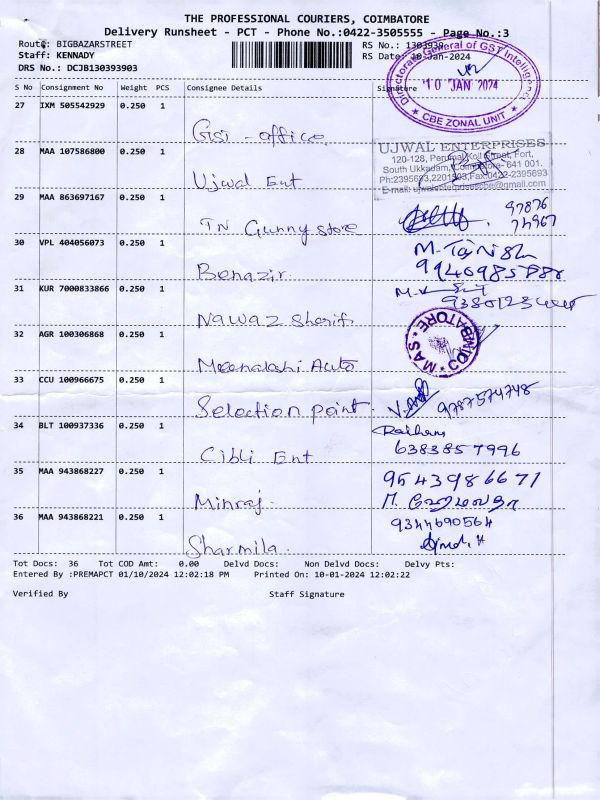 THE PROFESSIONAL COURIERS, COIMBATORE
Delivery Runsheet - PCT - Phone No.:0422-3505555 - Page No.:3
Route: BIGBAZARSTREET
Staff: KENNADY
DRS No.: DCJB130393903
RS No.: 1303939
RS Date: 10-Jan-2024
Directorate General of GST Intelligence
10 JAN 2024
* CBE ZONAL UNIT *
S No Consignment No Weight PCS Consignee Details Signature
27 IXM 505542929 0.250 1
Gst - office
28 MAA 107586800 0.250 1
Ujwal Ent
UJWAL ENTERPRISES
120-128, Perumal Koil Street, Fort,
South Ukkadam, Coimbatore- 641 001.
Ph:2395693,2201593,Fax:0422-2395693
E-mail: ujwalenterprisescbe@gmail.com
29 MAA 863697167 0.250 1
TN Gunny store
97876
74967
30 VPL 404056073 0.250 1
Benazir
M. Tajnish
31 KUR 7000833866 0.250 1
Nawaz Sherif
32 AGR 100306868 0.250 1
Meenakshi Auto
33 CCU 100966675 0.250 1
Selection point
9787574748
34 BLT 100937336 0.250 1
Cibli Ent
6383857996
35 MAA 943868227 0.250 1
Minraj
9543986671
36 MAA 943868221 0.250 1
Sharmila
9344690564
Tot Docs: 36 Tot COD Amt: 0.00 Delvd Docs: Non Delvd Docs: Delvy Pts:
Entered By :PREMAPCT 01/10/2024 12:02:18 PM Printed On: 10-01-2024 12:02:22
Verified By Staff Signature